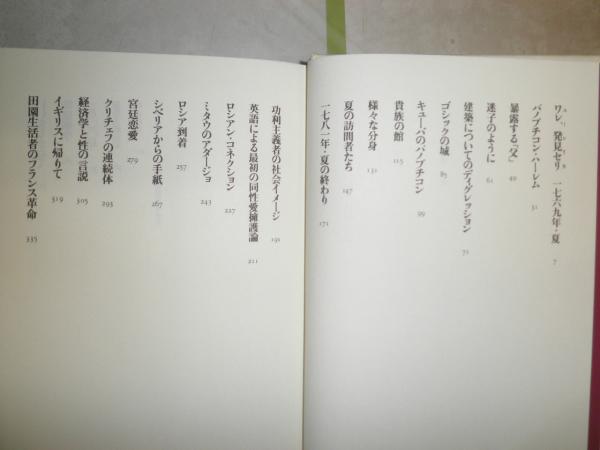 ワレ、発見セリ 一七六九年・夏 7
パノプチコン・ハーレム 31
暴露する「父」 49
迷子のように 61
建築についてのディグレッション 71
ゴシックの城 85
キューバのパノプチコン 99
貴族の館 115
様々な分身 131
夏の訪問者たち 147
一七八一年・夏の終わり 171
功利主義者の社会イメージ 191
英語による最初の同性愛擁護論 211
ロシアン・コネクション 227
ミタウのアダージョ 243
ロシア到着 257
シベリアからの手紙 267
宮廷恋愛 279
クリチェフの連続体 293
経済学と性の言説 305
イギリスに帰りて 319
田園生活者のフランス革命 335